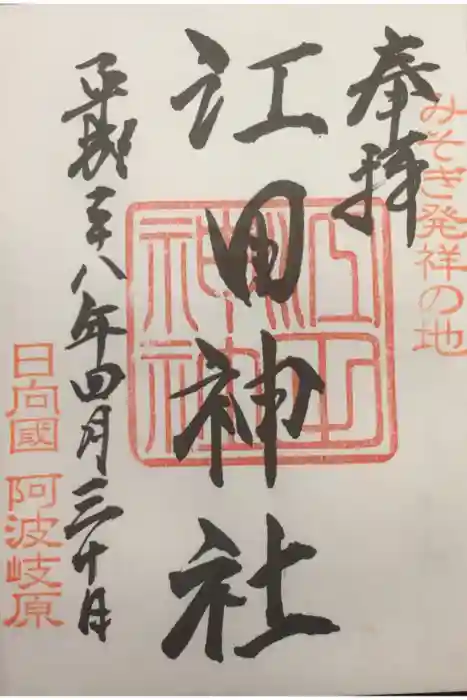 みそぎ発祥の地
奉拝
江田神社
江田神社
平成二十八年四月三十日
日向國 阿波岐原